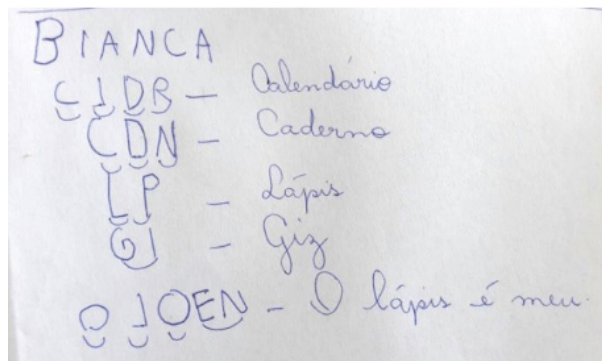 BIANCA
CJDB - Calendário
CDN - Caderno
LP - Lápis
GI - Giz
OJOEN - O lápis é meu.